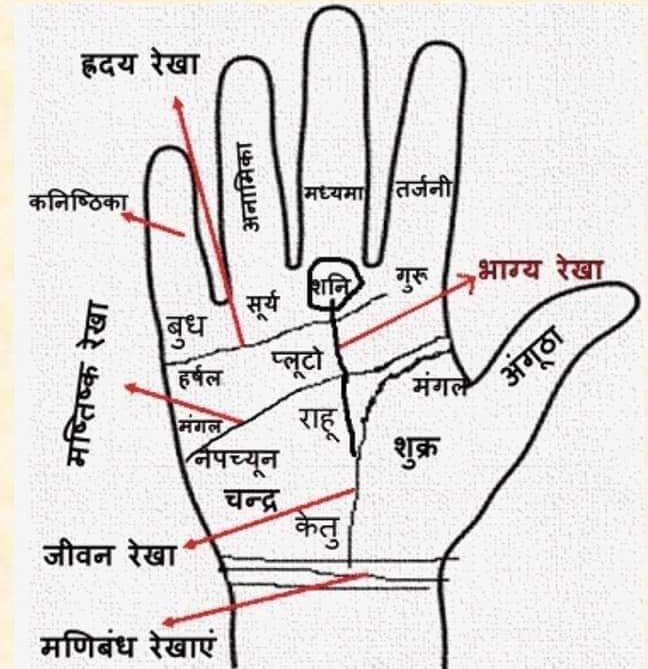 ह्रदय रेखा
अनामिका
मध्यमा
तर्जनी
कनिष्ठिका
शनि
गुरू
भाग्य रेखा
सूर्य
बुध
प्लूटो
हर्षल
मंगल
अंगूठा
मष्तिष्क रेखा
मंगल
राहू
शुक्र
नेपच्यून
चन्द्र
केतु
जीवन रेखा
मणिबंध रेखाएं